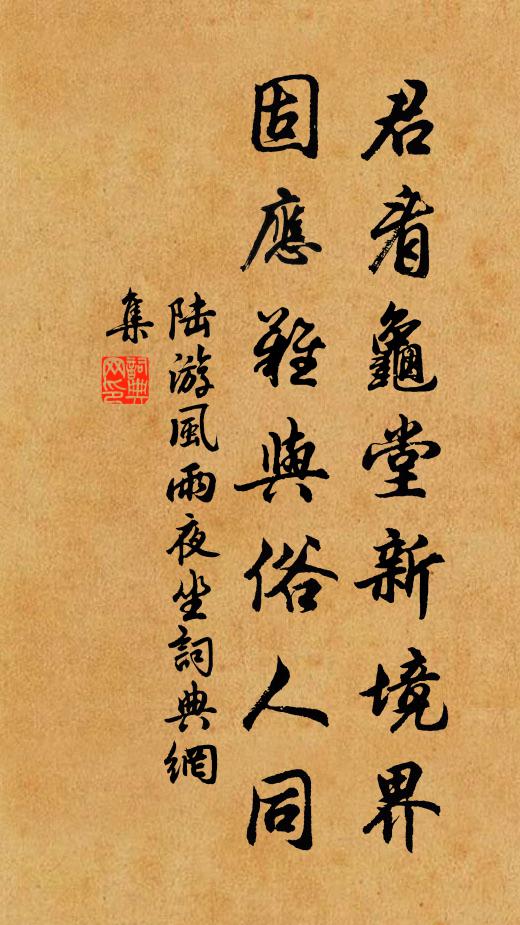 君看龜堂新境界
固應難與俗人同
陸游風雨夜坐詞典網
集
詞典
网印